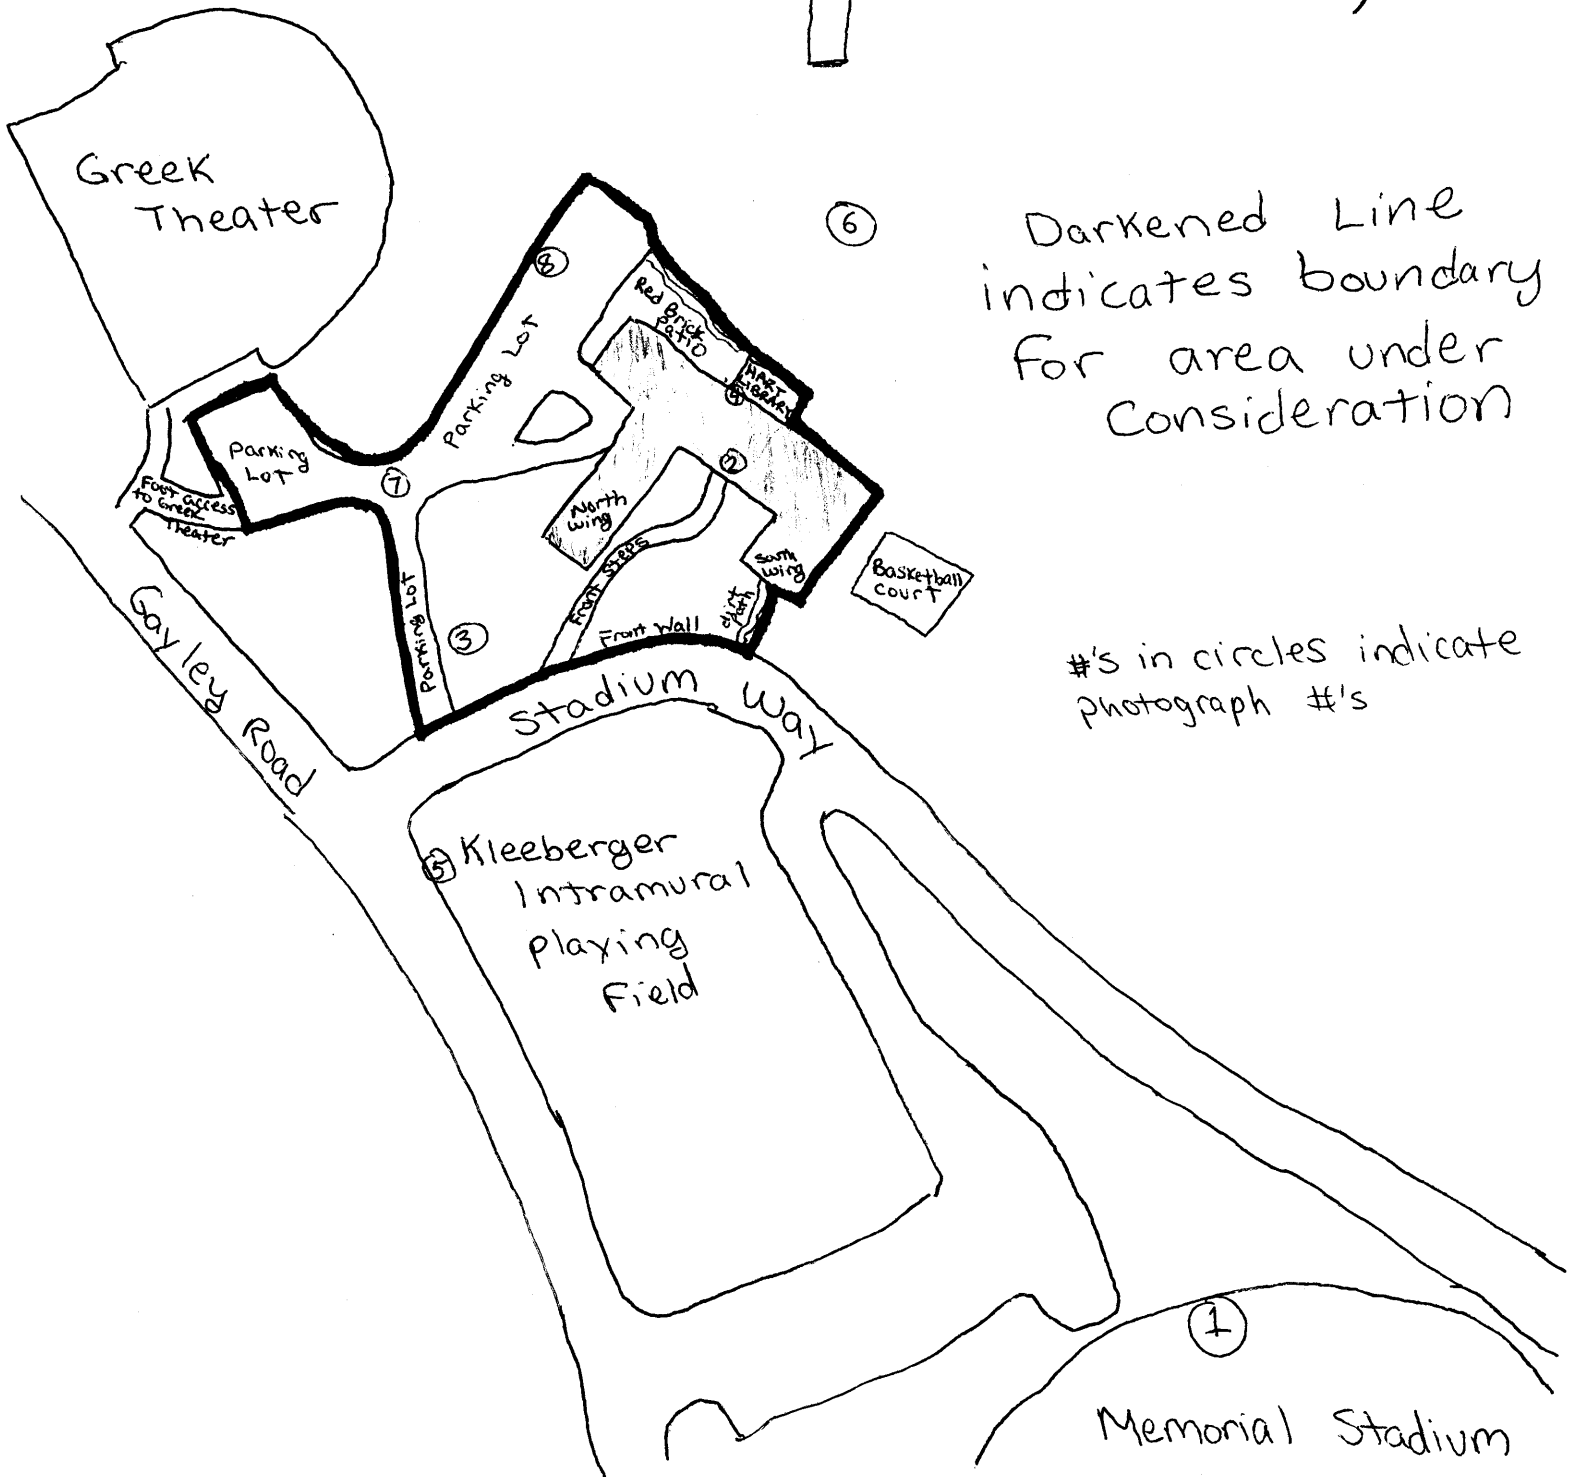 Greek
Theater
6
Darkened Line
indicates boundary
For area under
Consideration
8
Red Brick
Patio
HART
LIBRARY
4
Parking Lot
Parking
Lot
7
2
Foot access
to Greek
Theater
North
wing
Front Steps
South
wing
Basketball
court
dirt
Path
Front Wall
3
Parking Lot
#'s in circles indicate
photograph #'s
Gayley Road
Stadium Way
5
Kleeberger
Intramural
Playing
Field
1
Memorial Stadium